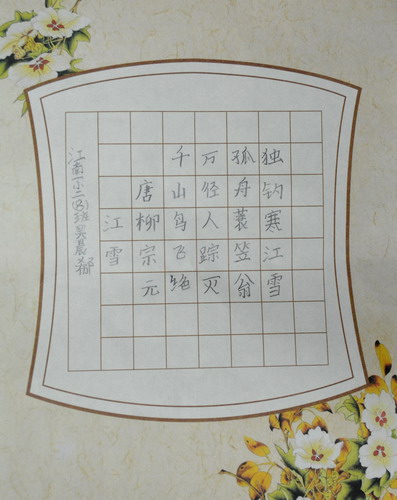 江雪
唐柳宗元
千山鸟飞绝
万径人踪灭
孤舟蓑笠翁
独钓寒江雪
江南一小二(3)班吴晨